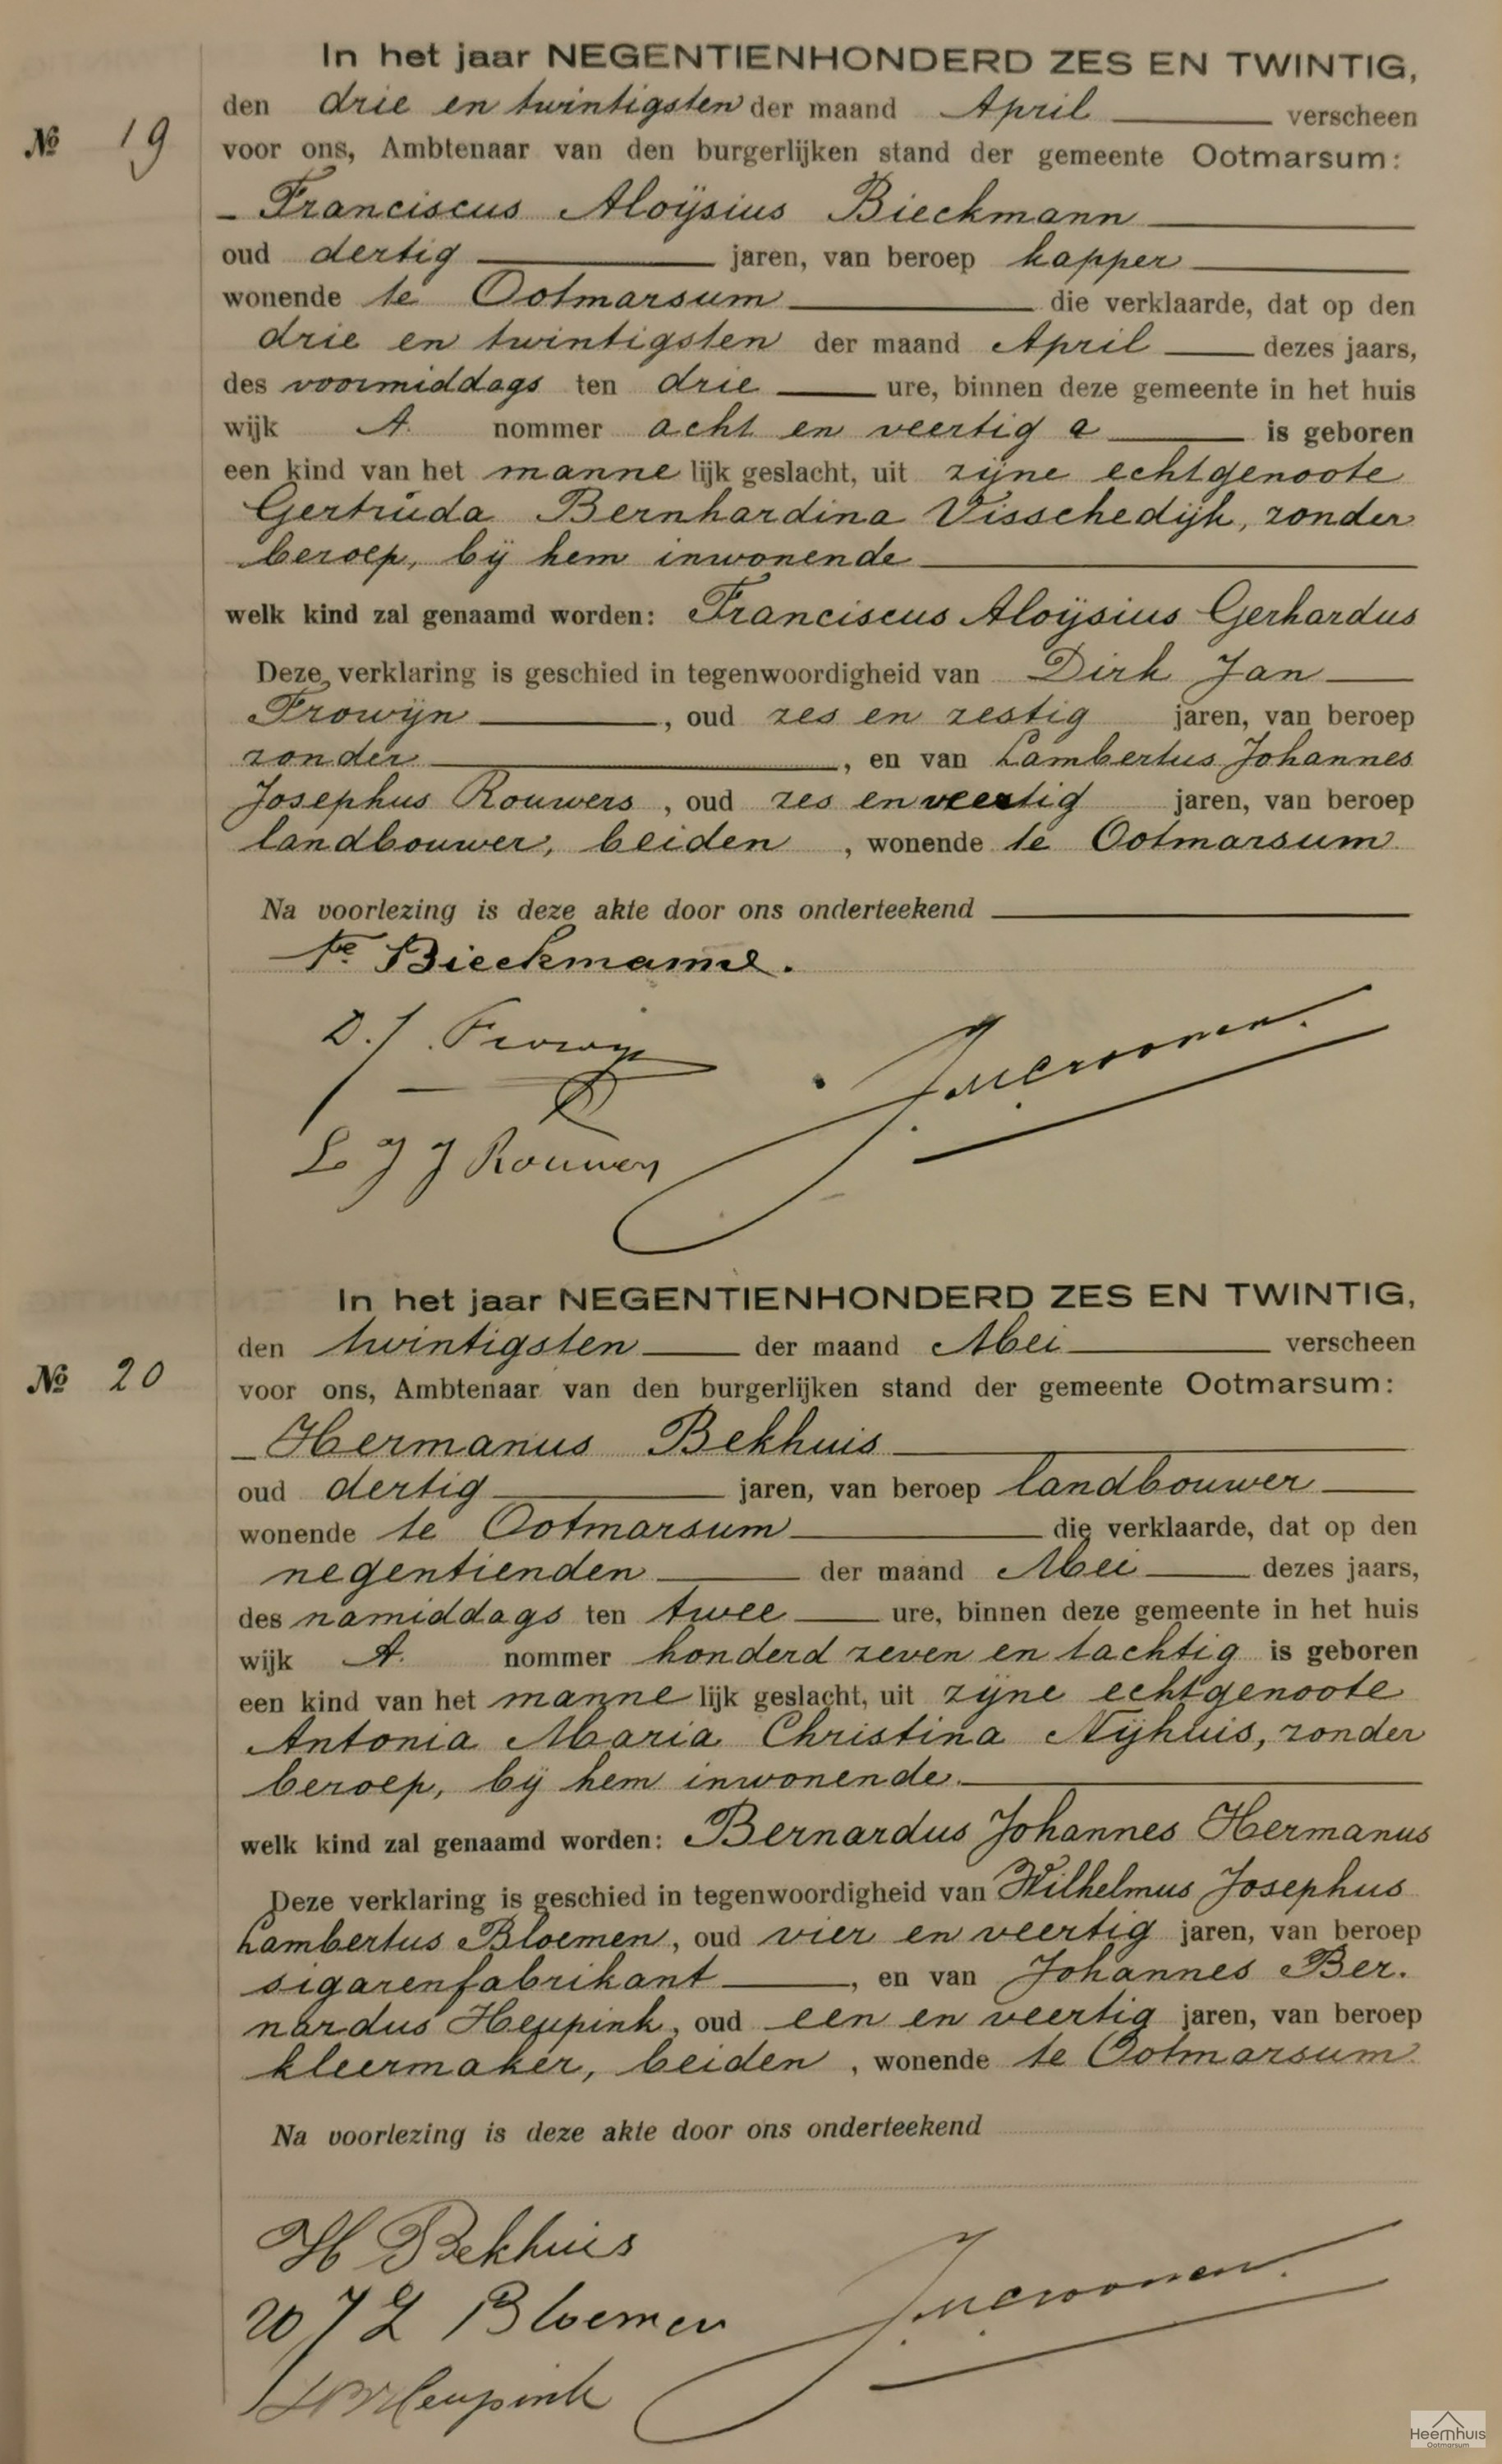 In het jaar NEGENTIENHONDERD ZES EN TWINTIG,
den drie en twintigsten der maand April verscheen
№ 19
voor ons, Ambtenaar van den burgerlijken stand der gemeente Ootmarsum:
Franciscus Aloÿsius Bieckmann
oud dertig jaren, van beroep kapper
wonende te Ootmarsum die verklaarde, dat op den
drie en twintigsten der maand April dezes jaars,
des voormiddags ten drie ure, binnen deze gemeente in het huis
wijk A. nommer acht en veertig a is geboren
een kind van het mannelijk geslacht, uit zijne echtgenoote
Gertruda Bernhardina Visschedijk, zonder
beroep, bij hem inwonende
welk kind zal genaamd worden: Franciscus Aloÿsius Gerhardus
Deze verklaring is geschied in tegenwoordigheid van Dirk Jan
Frowijn, oud zes en zestig jaren, van beroep
zonder, en van Lambertus Johannes
Josephus Rouwers, oud zes en veertig jaren, van beroep
landbouwer, beiden, wonende te Ootmarsum
Na voorlezing is deze akte door ons onderteekend
Fr. Bieckmann.
D. J. Frowijn
L J J Rouwers
In het jaar NEGENTIENHONDERD ZES EN TWINTIG,
den twintigsten der maand Mei verscheen
№ 20
voor ons, Ambtenaar van den burgerlijken stand der gemeente Ootmarsum:
Hermanus Bekhuis
oud dertig jaren, van beroep landbouwer
wonende te Ootmarsum die verklaarde, dat op den
negentienden der maand Mei dezes jaars,
des namiddags ten twee ure, binnen deze gemeente in het huis
wijk A. nommer honderd zeven en tachtig is geboren
een kind van het mannelijk geslacht, uit zijne echtgenoote
Antonia Maria Christina Nijhuis, zonder
beroep, bij hem inwonende.
welk kind zal genaamd worden: Bernardus Johannes Hermanus
Deze verklaring is geschied in tegenwoordigheid van Wilhelmus Josephus
Lambertus Bloemen, oud vier en veertig jaren, van beroep
sigarenfabrikant, en van Johannes Ber.
nardus Heupink, oud een en veertig jaren, van beroep
kleermaker, beiden, wonende te Ootmarsum
Na voorlezing is deze akte door ons onderteekend
H Bekhuis
W J L Bloemen
Heupink
Heemhuis
Ootmarsum